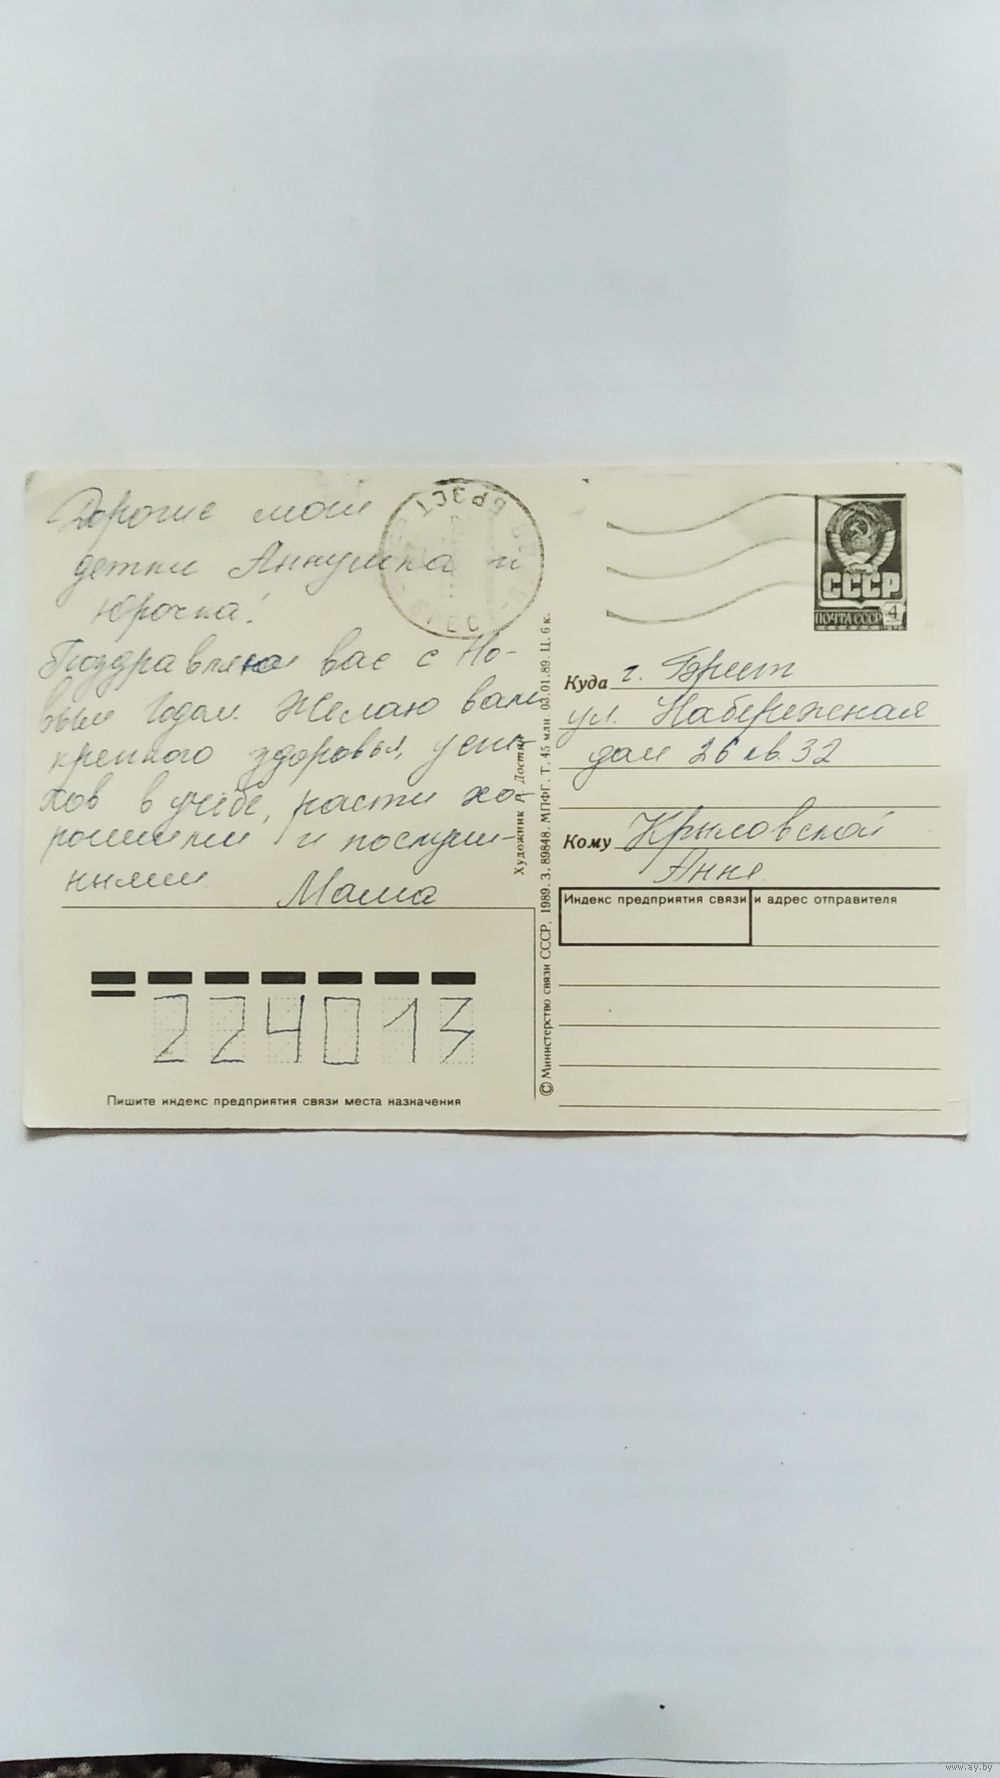 Дорогие мои
детки Аннушка и
Юрочка!
Поздравляю вас с Но-
вым Годом. Желаю вам
крепкого здоровья, успе-
хов в учёбе, расти хо-
рошими и послуш-
ными. Мама
224013
Пишите индекс предприятия связи места назначения
Художник Л.
© Министерство связи СССР, 1989. З. 89848. МПФГ. Т. 45 млн. 03.01.89. Ц. 6 к.
БРЭСТ
БРЕСТ
СССР
ПОЧТА СССР 4
Куда г. Брест
ул. Набережная
дом 26 кв. 32
Кому Крыловской
Анне.
Индекс предприятия связи и адрес отправителя
www.ay.by